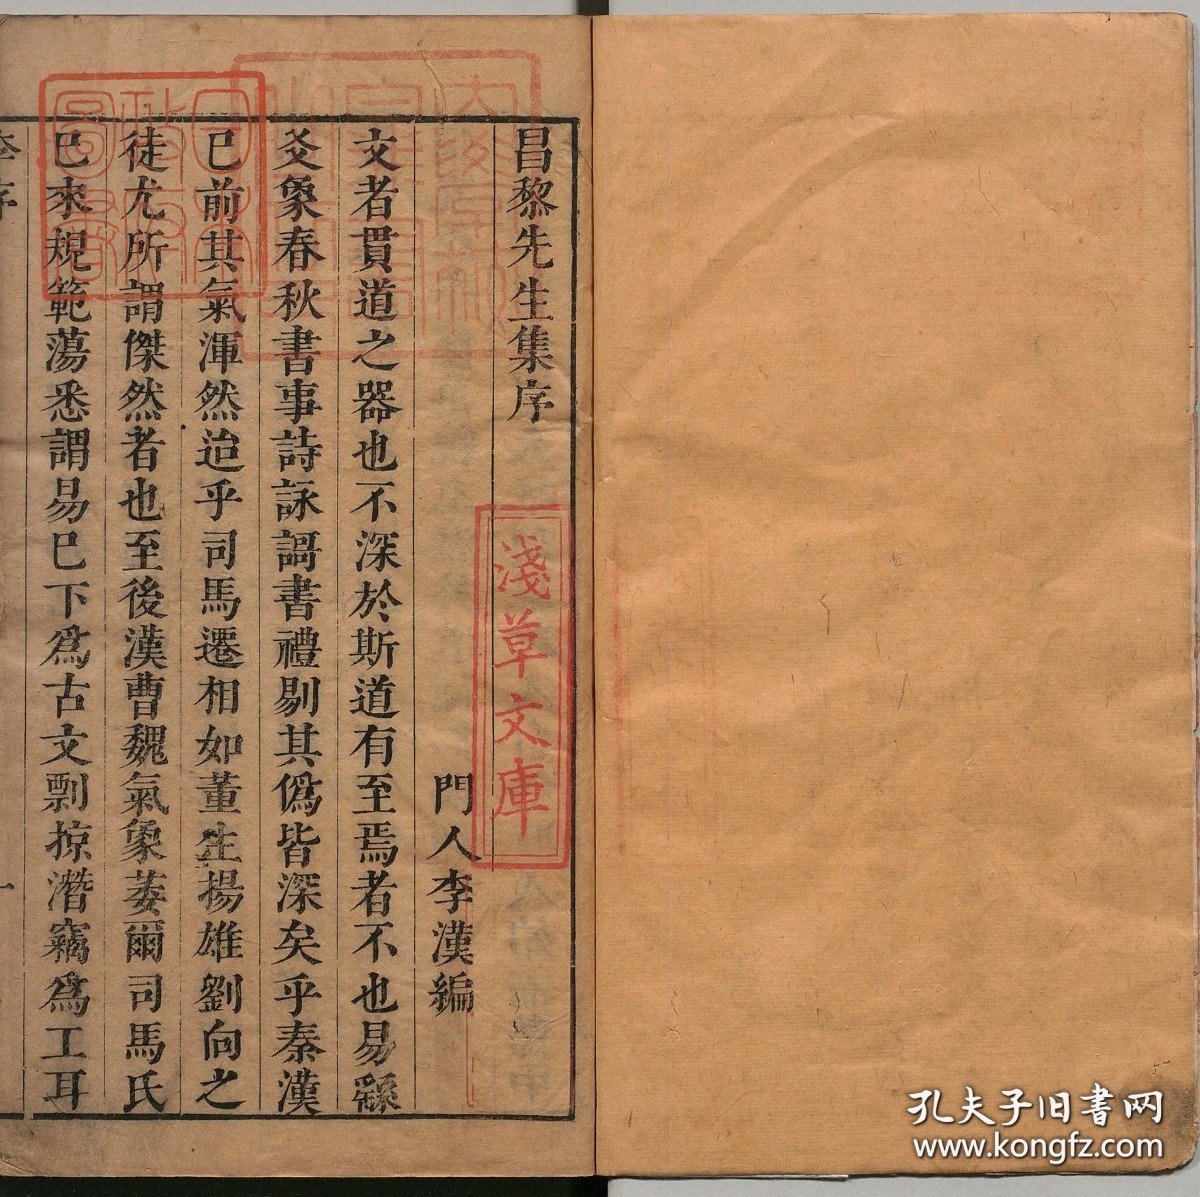 昌黎先生集序
門人李漢編
文者貫道之器也不深於斯道有至焉者不也易繇
爻象春秋書事詩詠謌書禮剔其僞皆深矣乎秦漢
已前其氣渾然迨乎司馬遷相如董生揚雄劉向之
徒尤所謂傑然者也至後漢曹魏氣象萎爾司馬氏
已來規範蕩悉謂易已下爲古文剽掠潛竊爲工耳
淺草文庫
日本政府圖書
孔夫子旧书网
www.kongfz.com